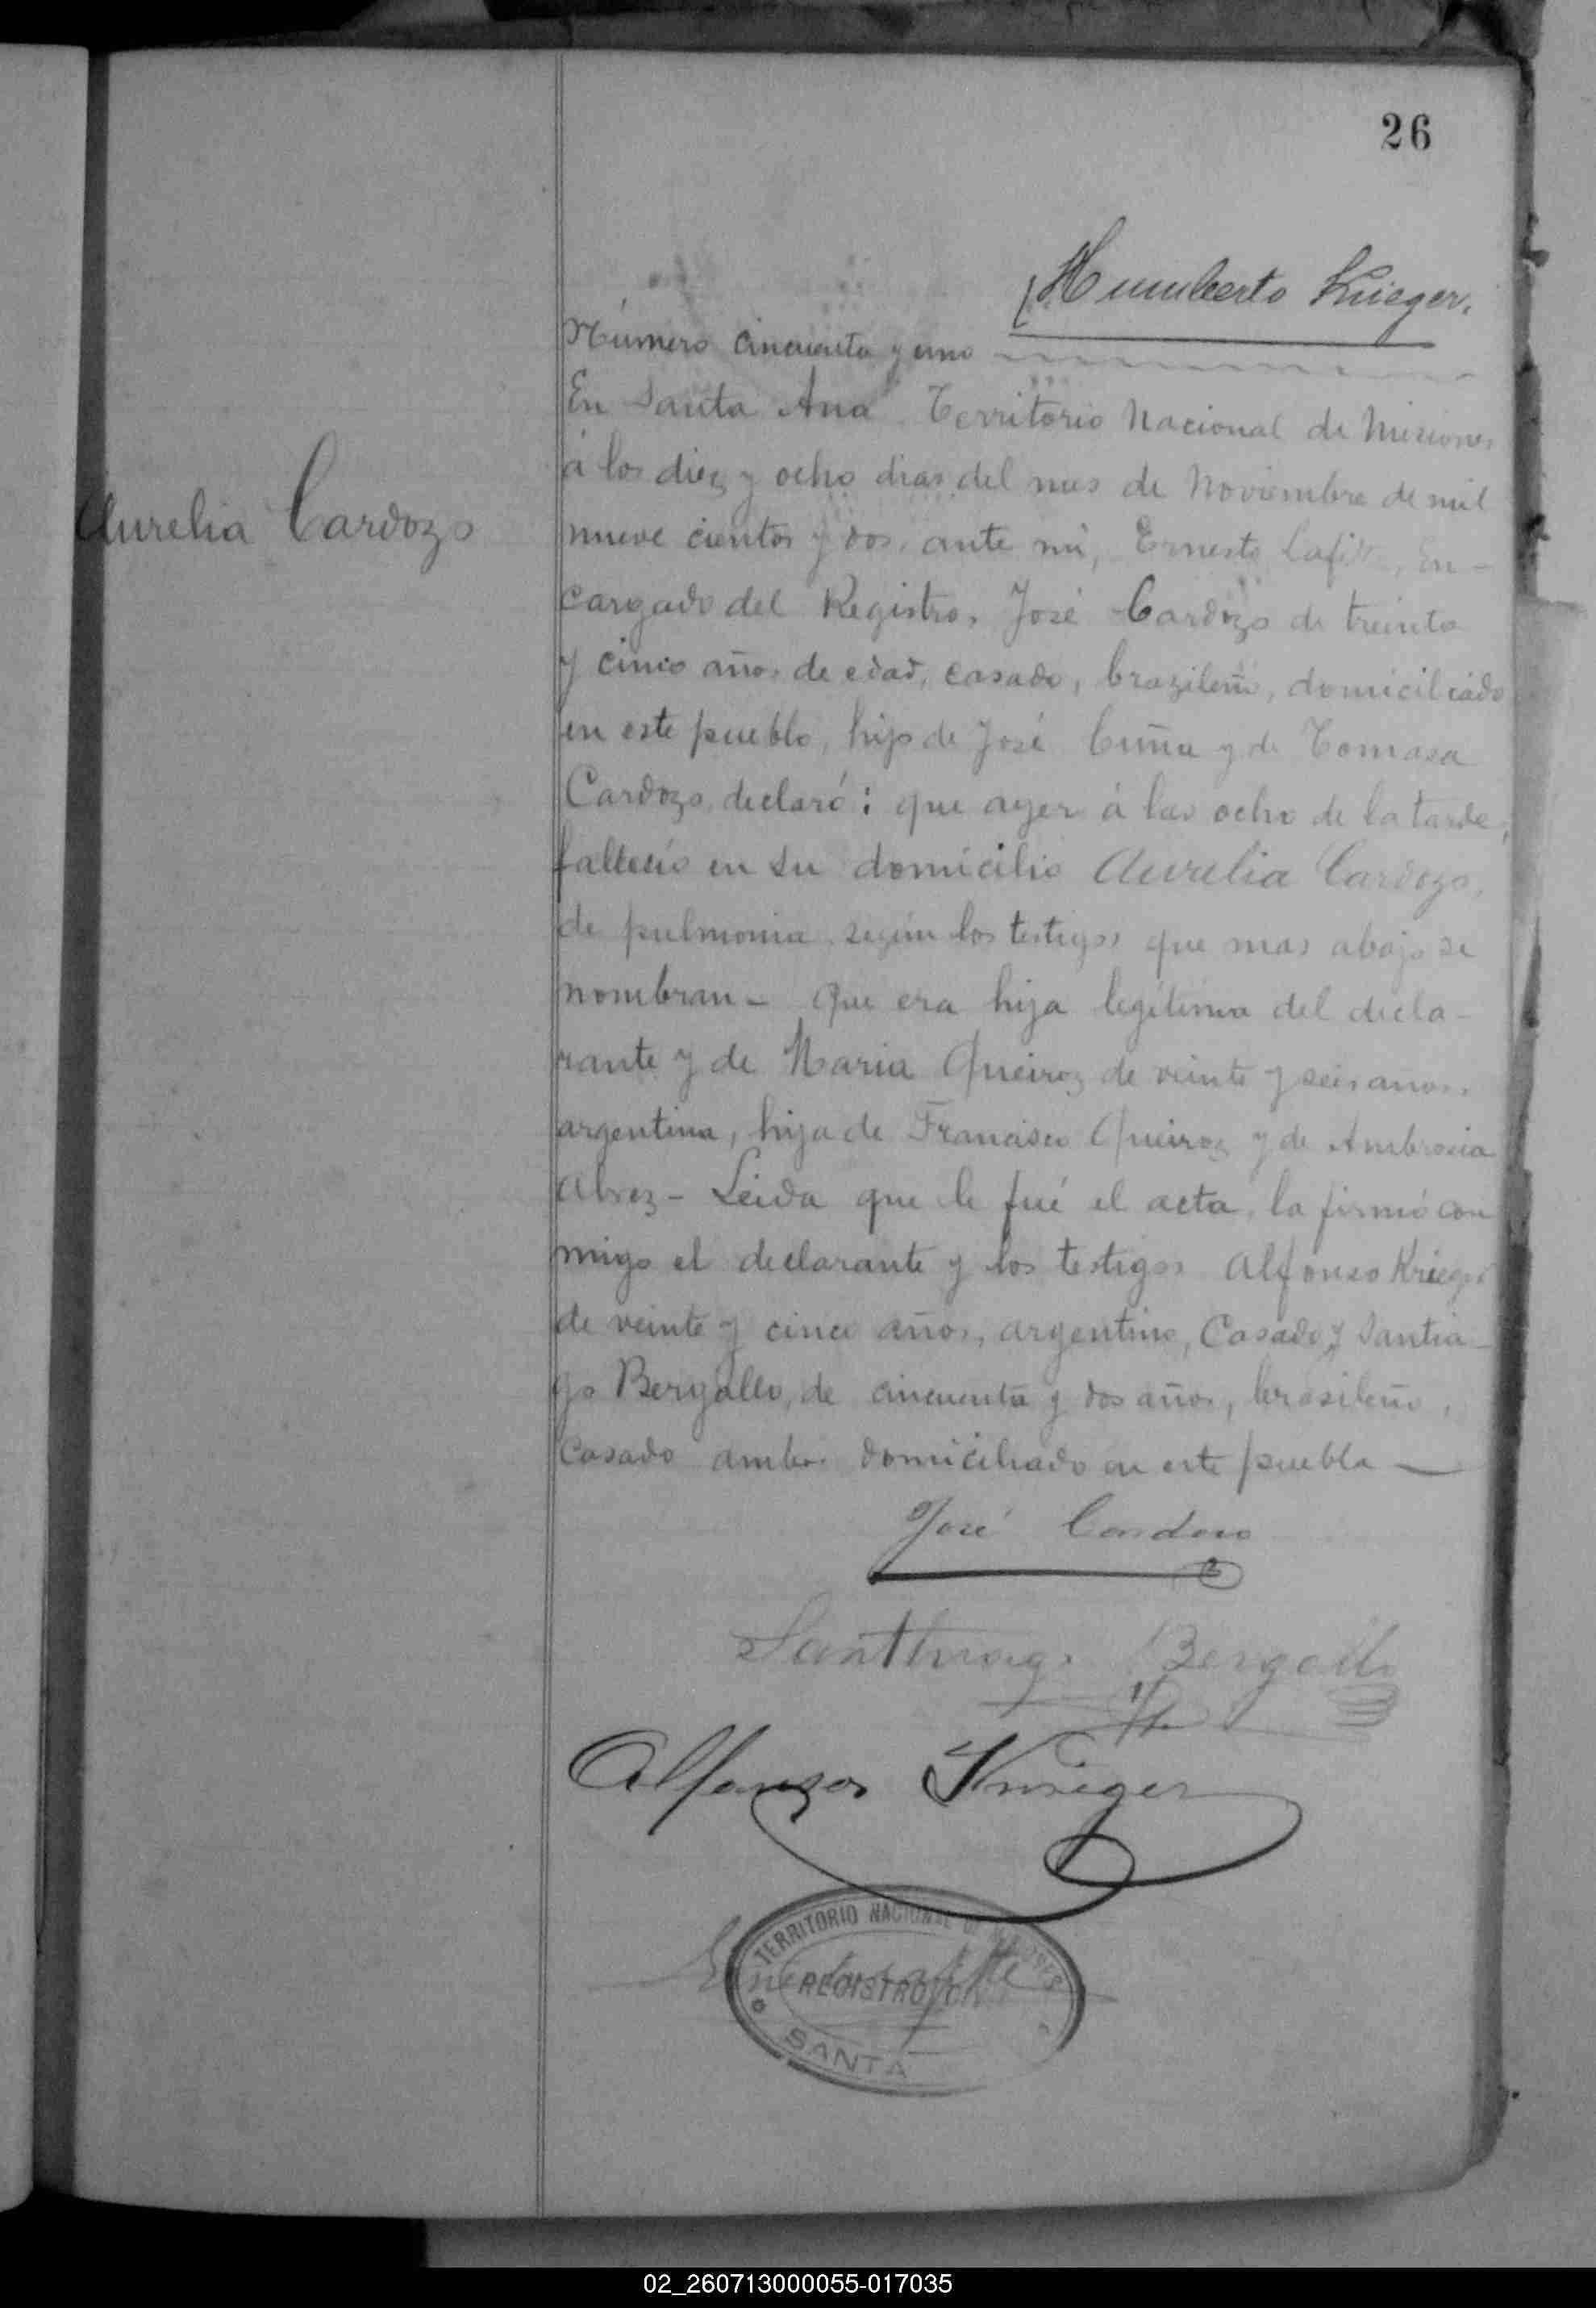 26
Humberto Krieger.
Número cincuenta y uno
En Santa Ana Territorio Nacional de Misiones
á los diez y ocho dias del mes de Noviembre de mil
Aurelia Cardozo
nueve cientos y dos, ante mi, Ernesto Lafitte, En-
cargado del Registro, José Cardozo de treinta
y cinco años de edad, casado, brazileño, domiciliado
en este pueblo, hijo de José Cuña y de Tomasa
Cardozo, declaró: que ayer á las ocho de la tarde,
falleció en su domicilio Aurelia Cardozo,
de pulmonia segun los testigos que mas abajo se
nombran - Que era hija legítima del decla-
rante y de Maria Queiroz de veinte y seis años,
argentina, hija de Francisco Queiroz y de Ambrosia
Alvez - Leida que le fué el acta, la firmó con
migo el declarante y los testigos Alfonso Krieger
de veinte y cinco años, argentino, Casado y Santia-
go Bergallo, de cincuenta y dos años, brasileño,
Casado ambos domiciliado en este pueblo
José Cardoso
Santhiago Bergallo
Alfonso Krieger
TERRITORIO NACIONAL DE MISIONES
Ernesto Lafitte
REGISTRO
SANTA
02_260713000055-017035